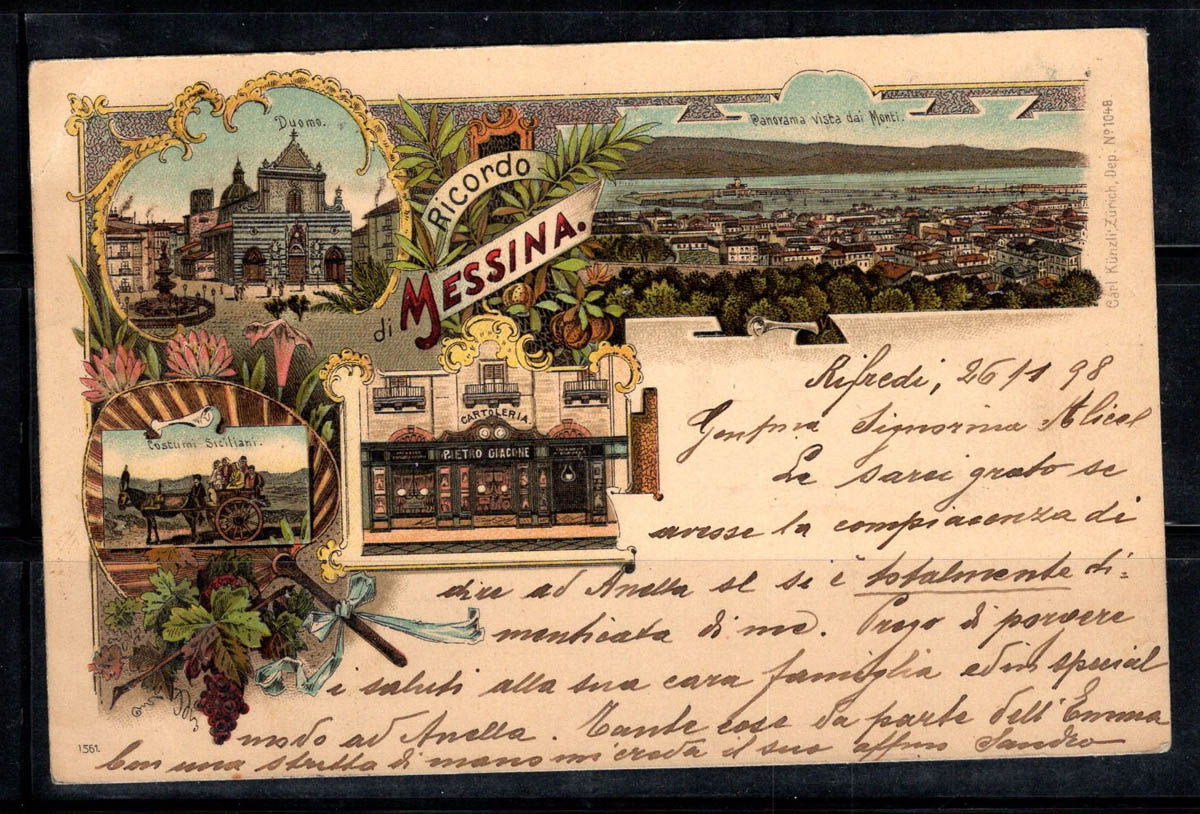 Duomo.
Ricordo
di MESSINA.
Panorama vista dai Monti.
Carl Künzli-Zürich, Dep. Nº 1048
Costumi Siciliani.
CARTOLERIA
PIETRO GIACONE
1561.
Rifredi, 26/1 98
Signorina
Le sarei grato se
avesse la compiacenza di
dire ad Anella se si è totalmente di=
menticata di me. Prego di porvere
i saluti alla sua cara famiglia ed in special
modo ad Anella. Tante cose da parte dell'Emma
Con una stretta di mano mi creda il suo affmo Sandro